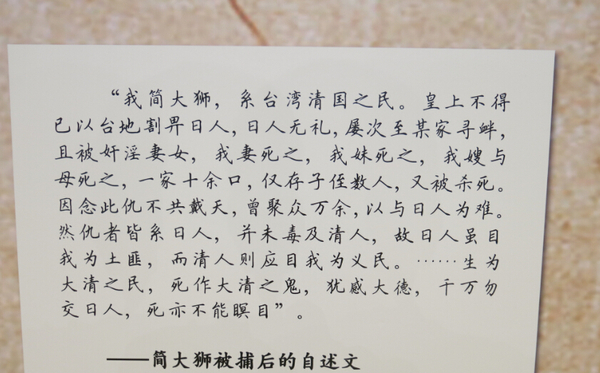 “我简大狮，系台湾清国之民。皇上不得
已以台地割畀日人，日人无礼，屡次至某家寻衅，
且被奸淫妻女，我妻死之，我妹死之，我嫂与
母死之，一家十余口，仅存子侄数人，又被杀死。
因念此仇不共戴天，曾聚众万余，以与日人为难。
然仇者皆系日人，并未毒及清人，故日人虽目
我为土匪，而清人则应目我为义民。⋯⋯生为
大清之民，死作大清之鬼，犹感大德，千万勿
交日人，死亦不能瞑目”。
——简大狮被捕后的自述文